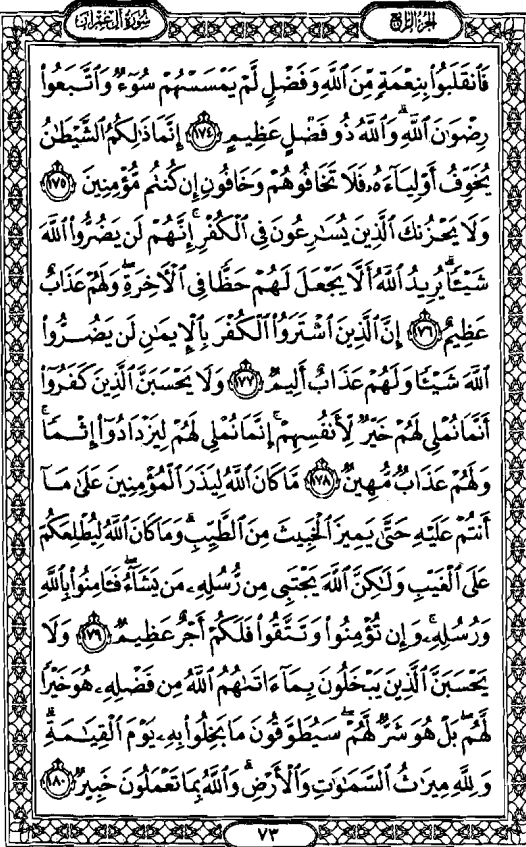 سُورَةُ آلِ عِمْرَانَ
الجُزْءُ الرَّابِع
فَٱنقَلَبُوا۟ بِنِعْمَةٍ مِّنَ ٱللَّهِ وَفَضْلٍ لَّمْ يَمْسَسْهُمْ سُوٓءٌ وَٱتَّبَعُوا۟
رِضْوَٰنَ ٱللَّهِ ۗ وَٱللَّهُ ذُو فَضْلٍ عَظِيمٍ ١٧٤ إِنَّمَا ذَٰلِكُمُ ٱلشَّيْطَٰنُ
يُخَوِّفُ أَوْلِيَآءَهُۥ فَلَا تَخَافُوهُمْ وَخَافُونِ إِن كُنتُم مُّؤْمِنِينَ ١٧٥
وَلَا يَحْزُنكَ ٱلَّذِينَ يُسَٰرِعُونَ فِى ٱلْكُفْرِ ۚ إِنَّهُمْ لَن يَضُرُّوا۟ ٱللَّهَ
شَيْـًٔا ۗ يُرِيدُ ٱللَّهُ أَلَّا يَجْعَلَ لَهُمْ حَظًّا فِى ٱلْءَاخِرَةِ ۖ وَلَهُمْ عَذَابٌ
عَظِيمٌ ١٧٦ إِنَّ ٱلَّذِينَ ٱشْتَرَوُا۟ ٱلْكُفْرَ بِٱلْإِيمَٰنِ لَن يَضُرُّوا۟
ٱللَّهَ شَيْـًٔا وَلَهُمْ عَذَابٌ أَلِيمٌ ١٧٧ وَلَا يَحْسَبَنَّ ٱلَّذِينَ كَفَرُوٓا۟
أَنَّمَا نُمْلِى لَهُمْ خَيْرٌ لِّأَنفُسِهِمْ ۚ إِنَّمَا نُمْلِى لَهُمْ لِيَزْدَادُوٓا۟ إِثْمًا ۚ
وَلَهُمْ عَذَابٌ مُّهِينٌ ١٧٨ مَّا كَانَ ٱللَّهُ لِيَذَرَ ٱلْمُؤْمِنِينَ عَلَىٰ مَآ
أَنتُمْ عَلَيْهِ حَتَّىٰ يَمِيزَ ٱلْخَبِيثَ مِنَ ٱلطَّيِّبِ ۗ وَمَا كَانَ ٱللَّهُ لِيُطْلِعَكُمْ
عَلَى ٱلْغَيْبِ وَلَٰكِنَّ ٱللَّهَ يَجْتَبِى مِن رُّسُلِهِۦ مَن يَشَآءُ ۖ فَـَٔامِنُوا۟ بِٱللَّهِ
وَرُسُلِهِۦ ۚ وَإِن تُؤْمِنُوا۟ وَتَتَّقُوا۟ فَلَكُمْ أَجْرٌ عَظِيمٌ ١٧٩ وَلَا
يَحْسَبَنَّ ٱلَّذِينَ يَبْخَلُونَ بِمَآ ءَاتَىٰهُمُ ٱللَّهُ مِن فَضْلِهِۦ هُوَ خَيْرًا
لَّهُم ۖ بَلْ هُوَ شَرٌّ لَّهُمْ ۖ سَيُطَوَّقُونَ مَا بَخِلُوا۟ بِهِۦ يَوْمَ ٱلْقِيَٰمَةِ ۗ
وَلِلَّهِ مِيرَٰثُ ٱلسَّمَٰوَٰتِ وَٱلْأَرْضِ ۗ وَٱللَّهُ بِمَا تَعْمَلُونَ خَبِيرٌ ١٨٠
٧٣